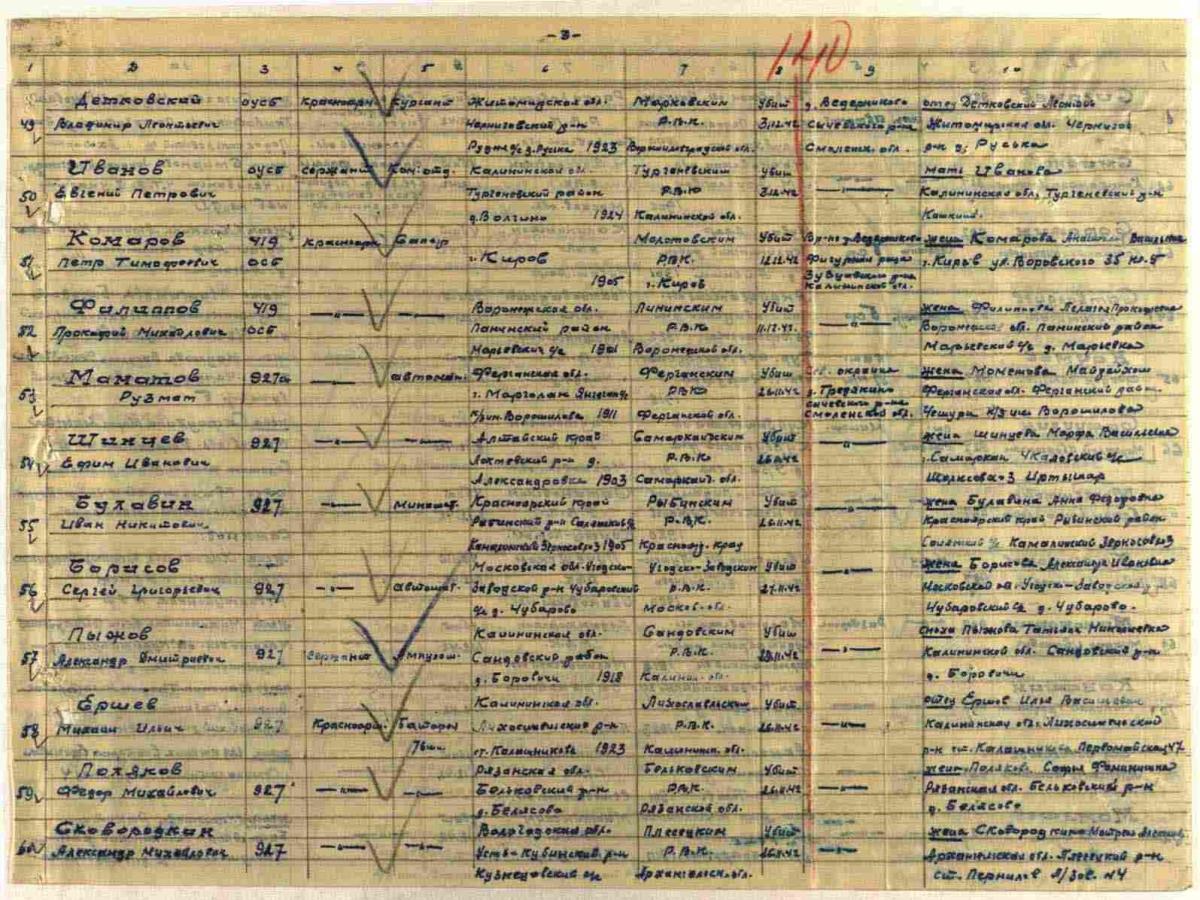 -3-
1140
1 2 3 4 5 6 7 8 9 10
Детковский оусб красноарм курсант Житомирская обл. Марковским Убит д. Ведерниково отец Детковский Леонтий
49 Владимир Леонтьевич Черниговский р-н Р.В.К. 3.12.42 Сычевского р-на Житомирская обл. Чернигов
1923 Ворошиловградской обл. Смоленск. обл. р-н д. Руська
Иванов оусб сержант Ком. отд. Калининской обл. Тургеневским Убит —"— мать Иванова
50 Евгений Петрович Тургеновский район Р.В.К 3.12.42 Калининская обл, Тургеневский р-н
д. Волгино 1924 Калининской обл.
Комаров 419 красноарм Сапер Молотовским Убит жена Комарова
51 Петр Тимофеевич осб г. Киров Р.В.К. 12.12.42 г. Киров ул. Воровского 35 кв. 5
1905 г. Киров Зубцовского р-на
Калининской обл.
Филиппов 419 —"— —"— Воронежская обл. Пининским Убит —"— жена Филиппова Пелагея Прокофьевна
52 Прокофий Михайлович осб Панинский район Р.В.К 11.12.42. Воронежская обл. Панинский район
Марьевский с/с 1901 Воронежской обл. Марьевский с/с д. Марьевка
Маматов 927 —"— автомат. Ферганская обл. Ферганским Убит Сев. окраина жена Мометова
53 Рузмат г. Марголан Р.В.К 26.11.42 д. Гредякино Ферганская обл. Ферганский район
Ворошилова 1911 Ферганской обл. Сычевского р-на
Смоленской обл. к/з им Ворошилова
Шинцев 927 —"— —"— Алтайский край Самаркандским Убит —"— жена Шинцева Марфа Васильевна
54 Ефим Иванович Локтевский р-н д. Р.В.К. 26.11.42 г. Самаркан Чкаловский с/с
Александровка 1903 Самарканд. обл.
Булавин 927 —"— миномет. Красноярский край Рыбинским Убит —"— жена Булавина Анна Федоровна
55 Иван Никитович Рыбинский р-н Р.В.К. 26.11.42 Красноярский край Рыбинский район
1905 Краснояр. край Камалинский Зерносовхоз
Борисов —"— Московская обл. Угодско- Угодско-Заводским Убит —"— жена Борисова Александра Ивановна
56 Сергей Григорьевич 927 —"— автомат. Заводской р-н Чубаровский Р.В.К. 27.11.42 Московской обл. Угодско-Заводской р
с/с д. Чубарово Москов. обл. Чубаровский с/с д. Чубарово.
Пыжов Калининская обл. Сандовским Убит сноха Пыжова Татьяна Николаевна
57 Александр Дмитриевич 927 сержант Сандовский район Р.В.К. 28.11.42 —"— Калининская обл. Сандовский р-н
д. Боровичи 1918 Калинин. обл. д. Боровичи
Ершев Калининская обл. Лихославльским Убит отец Ершов Илья Васильевич
58 Михаил Ильич 927 Красноарм. Р.В.К. 26.11.42 —"— Калининская обл. Лихославльский
ст. Калашниково 1923 Калинин. обл. р-н ст. Калашниково Первомайская 47
Поляков Рязанская обл. Бельковским Убит жена Поляков. Софья Фоминишна
59 Федор Михайлович 927 —"— —"— Бельковский р-н Р.В.К. 26.11.42 —"— Рязанская обл. Бельковский р-н
д. Белясово Рязанской обл. д. Белясово
Сковородкин Вологодская обл. Плесецким Убит жена Сковородкина
60 Александр Михайлович 927 —"— —"— Усть-Кубинский р-н Р.В.К. 26.11.42 —"— Архангельская обл. Плесецкий р-н
Кузнецовский с/с Архангельск. обл. ст. Пермилов Л/зав. №4